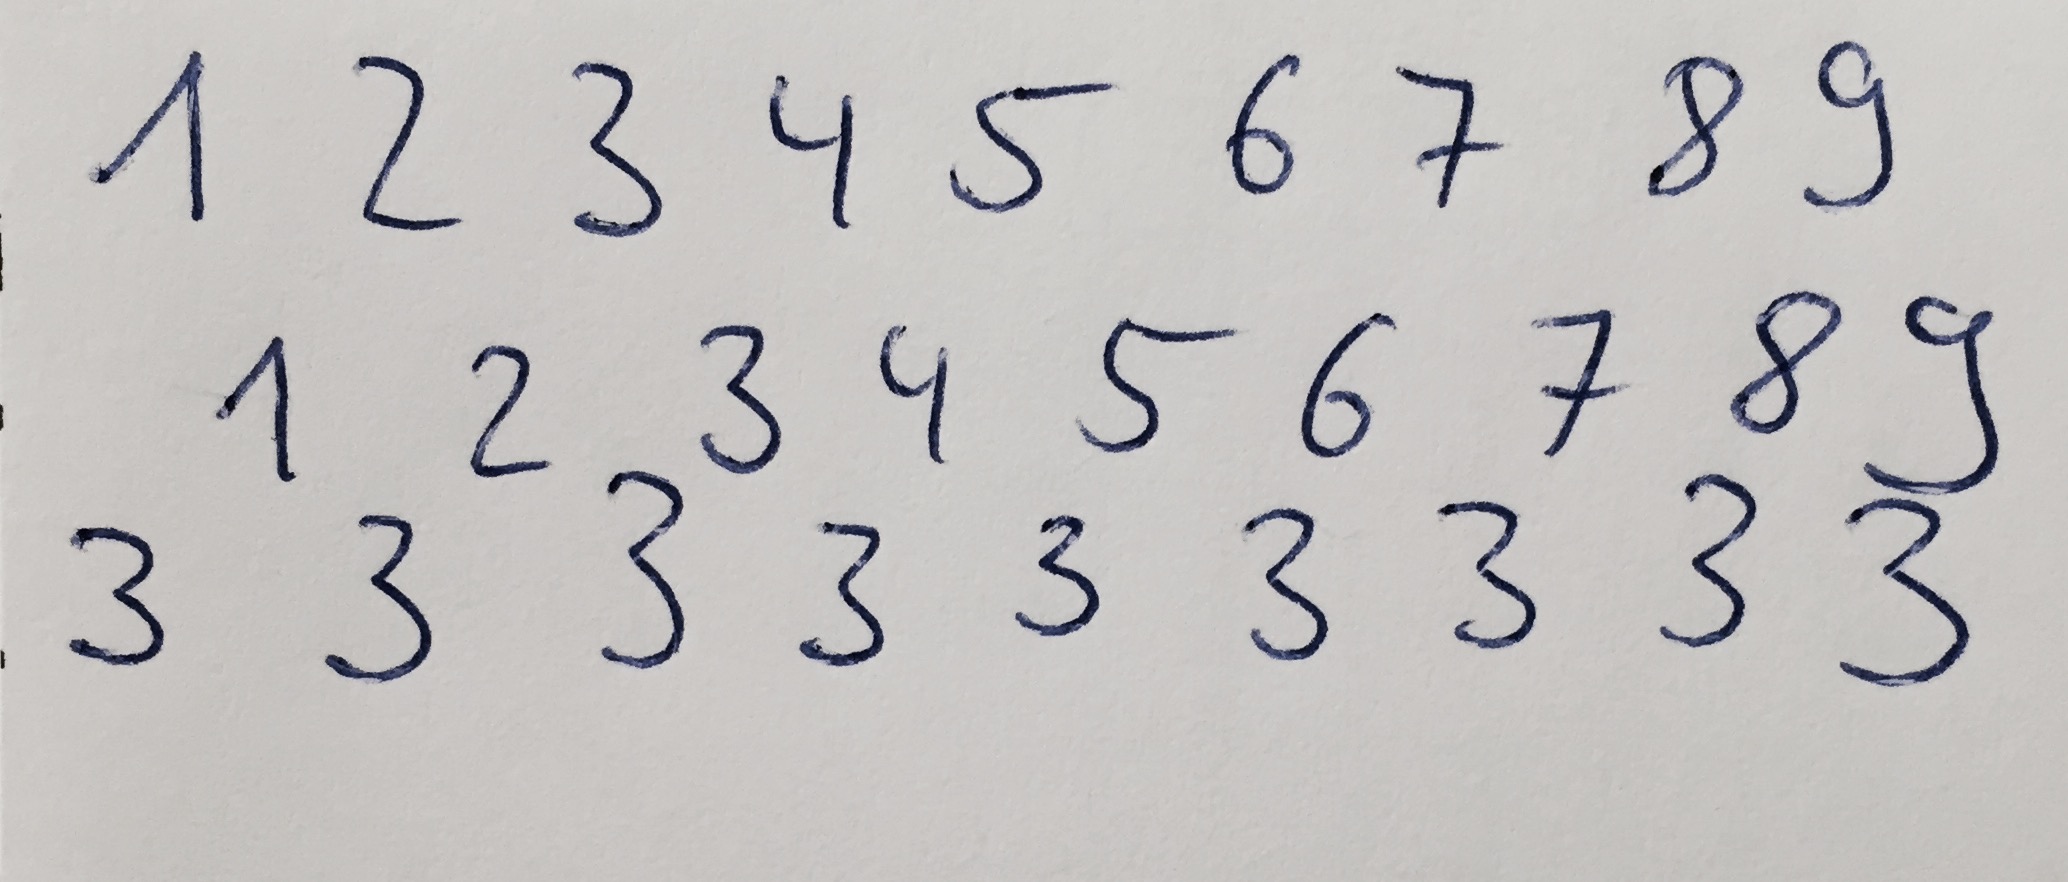 1 2 3 4 5 6 7 8 9
1 2 3 4 5 6 7 8 9
3 3 3 3 3 3 3 3 3